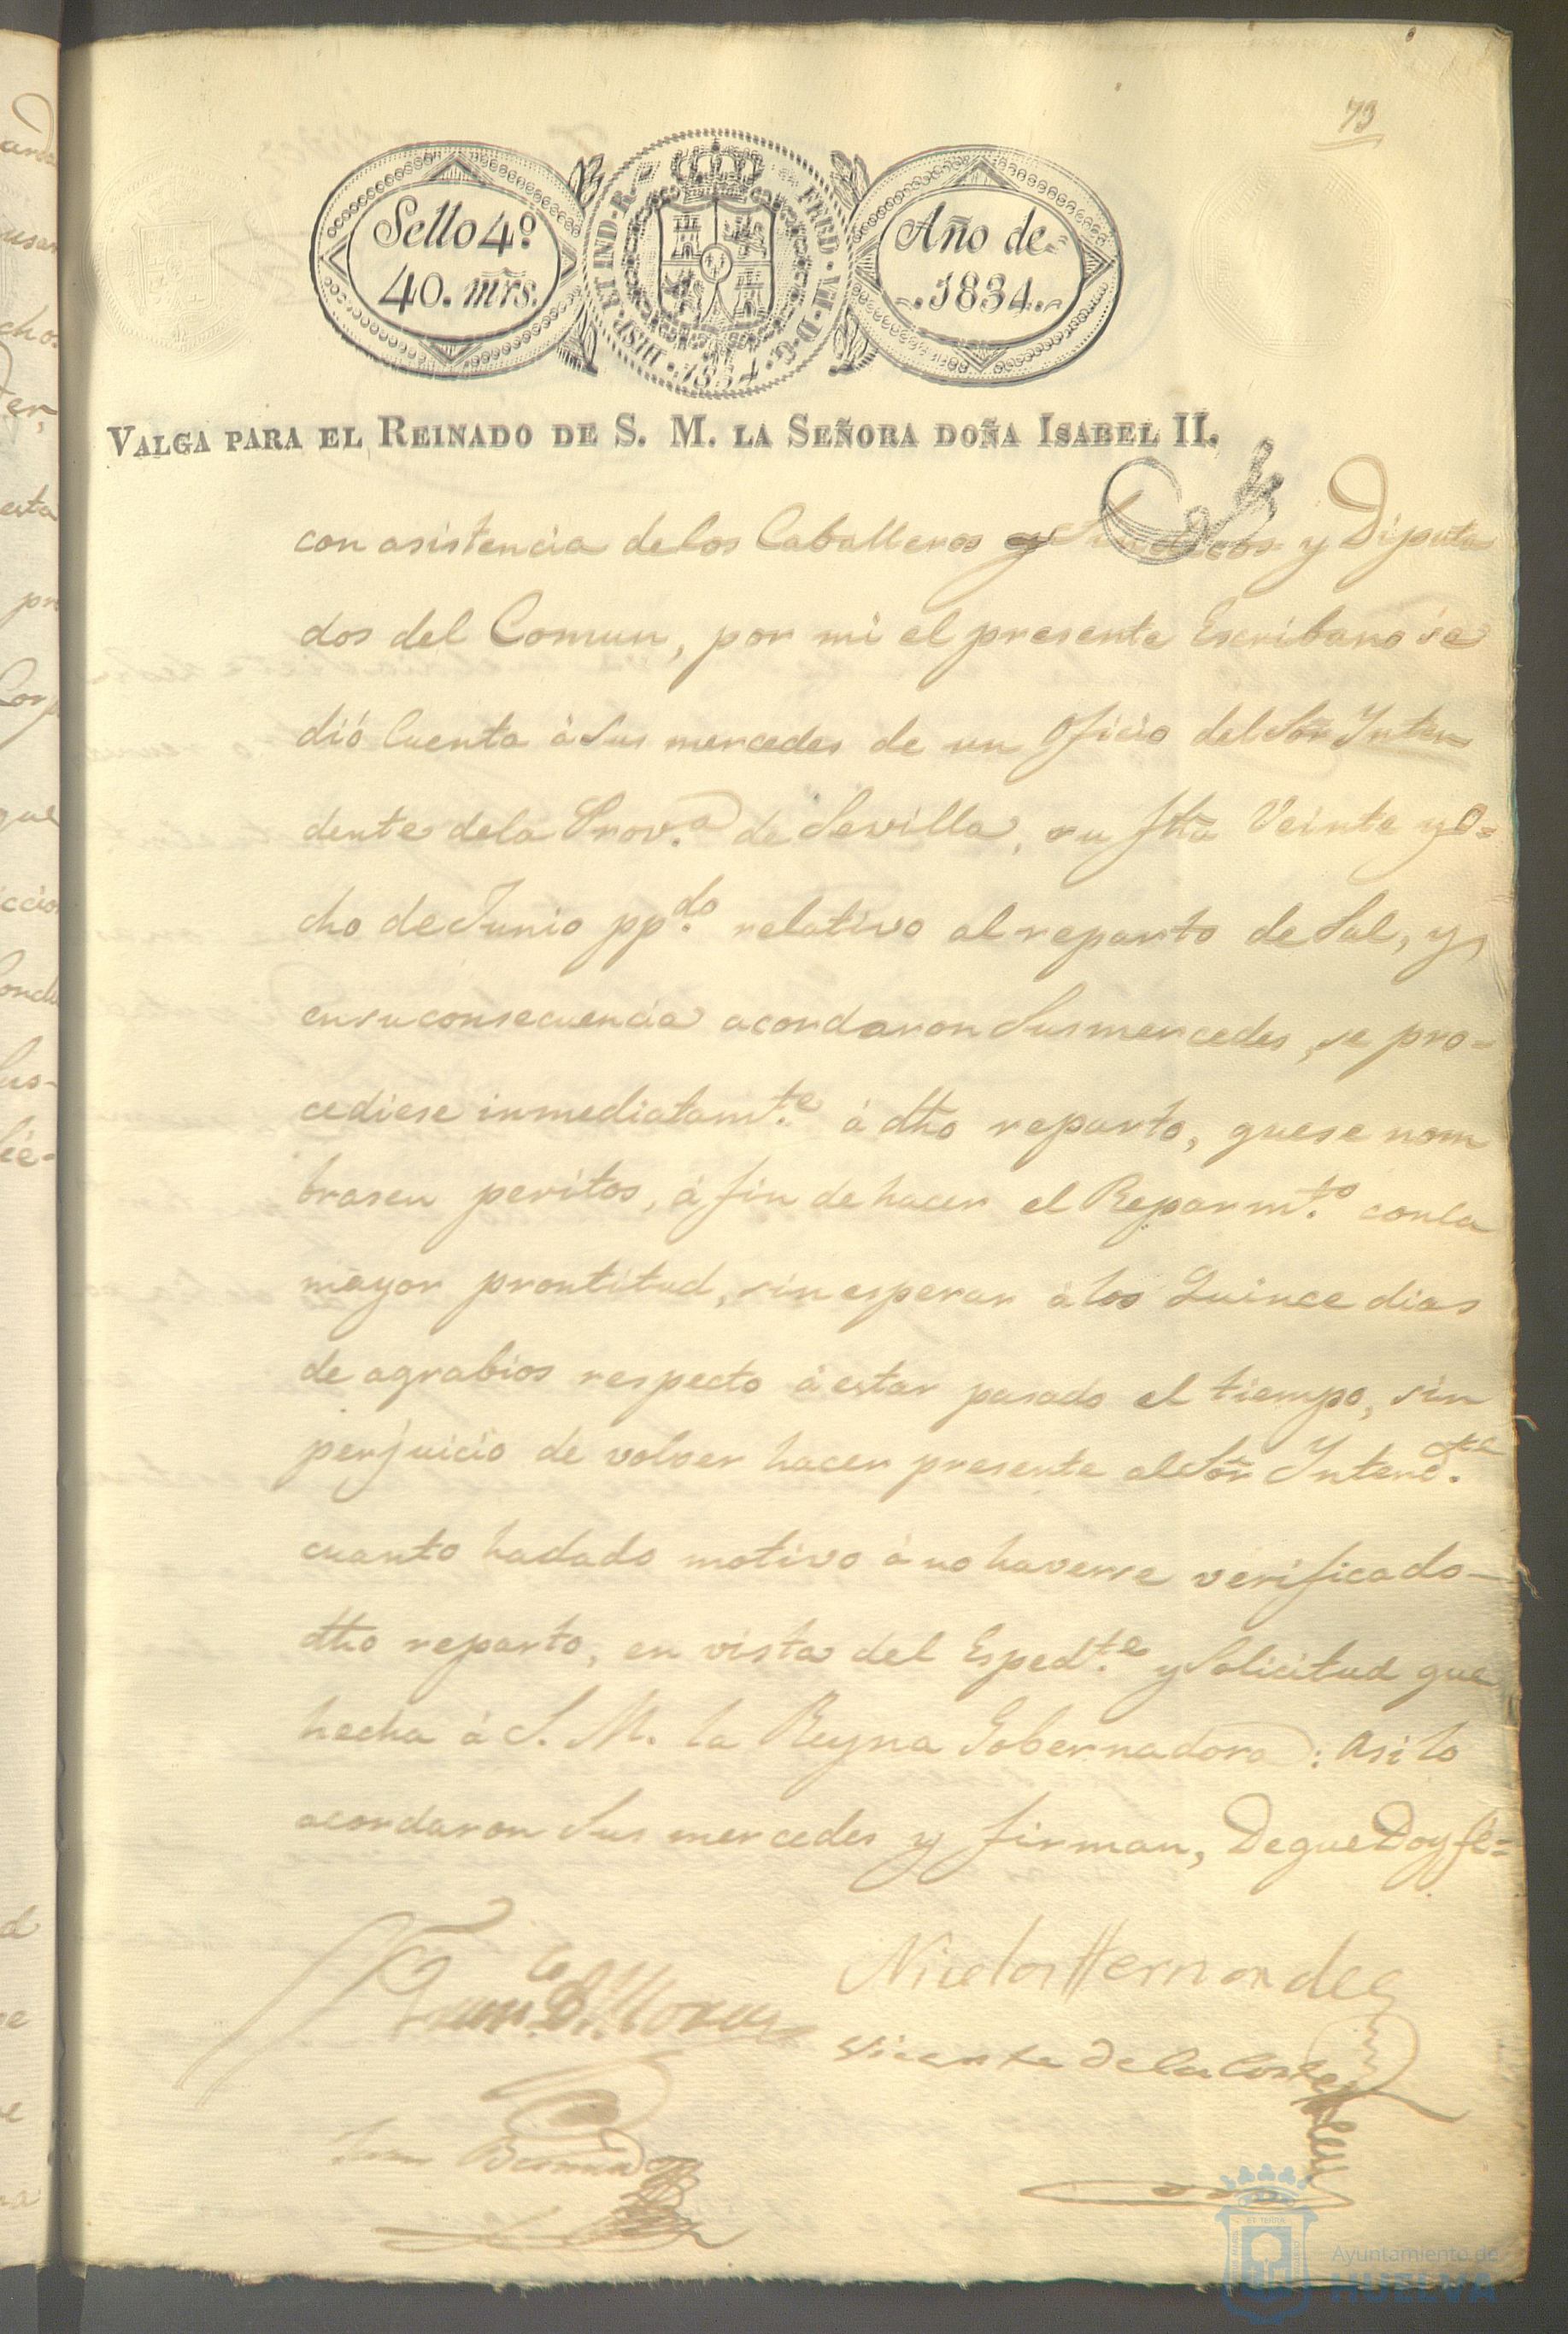 73
Sello 4º
40. mrs.
HISP. ET IND. R.
FERD. VII. D. G.
1834
Año de
1834.
VALGA PARA EL REINADO DE S. M. LA SEÑORA DOÑA ISABEL II.
con asistencia delos Caballeros y Sindicos y Diputa
dos del Comun, por mi el presente Escribano se
dió Cuenta à Sus mercedes de un Oficio del Sõr Inten
dente dela Prov.ª de Sevilla, su fha Veinte y o=
cho de Junio pp.do relativo al reparto de Sal, y
ensuconsecuencia acordaron Susmercedes, se pro=
cediese inmediatam.te à dho reparto, quese nom
brasen peritos, à fin de hacer el Reparm.to conla
mayor prontitud, sin esperar à los Quince dias
de agrabios respecto à estar pasado el tiempo, sin
perjuicio de volver hacer presente al Sõr Intend.te
cuanto hadado motivo à no haverse verificado
dho reparto, en vista del Esped.te y Solicitud que
hecha à S. M. la Reyna Gobernadora: Asi lo
acordaron Sus mercedes y firman, De que Doy fe=
Nicolas Hernandez
Fran.co D.
Vicente de la Corte
Juan
Ayuntamiento de
HUELVA